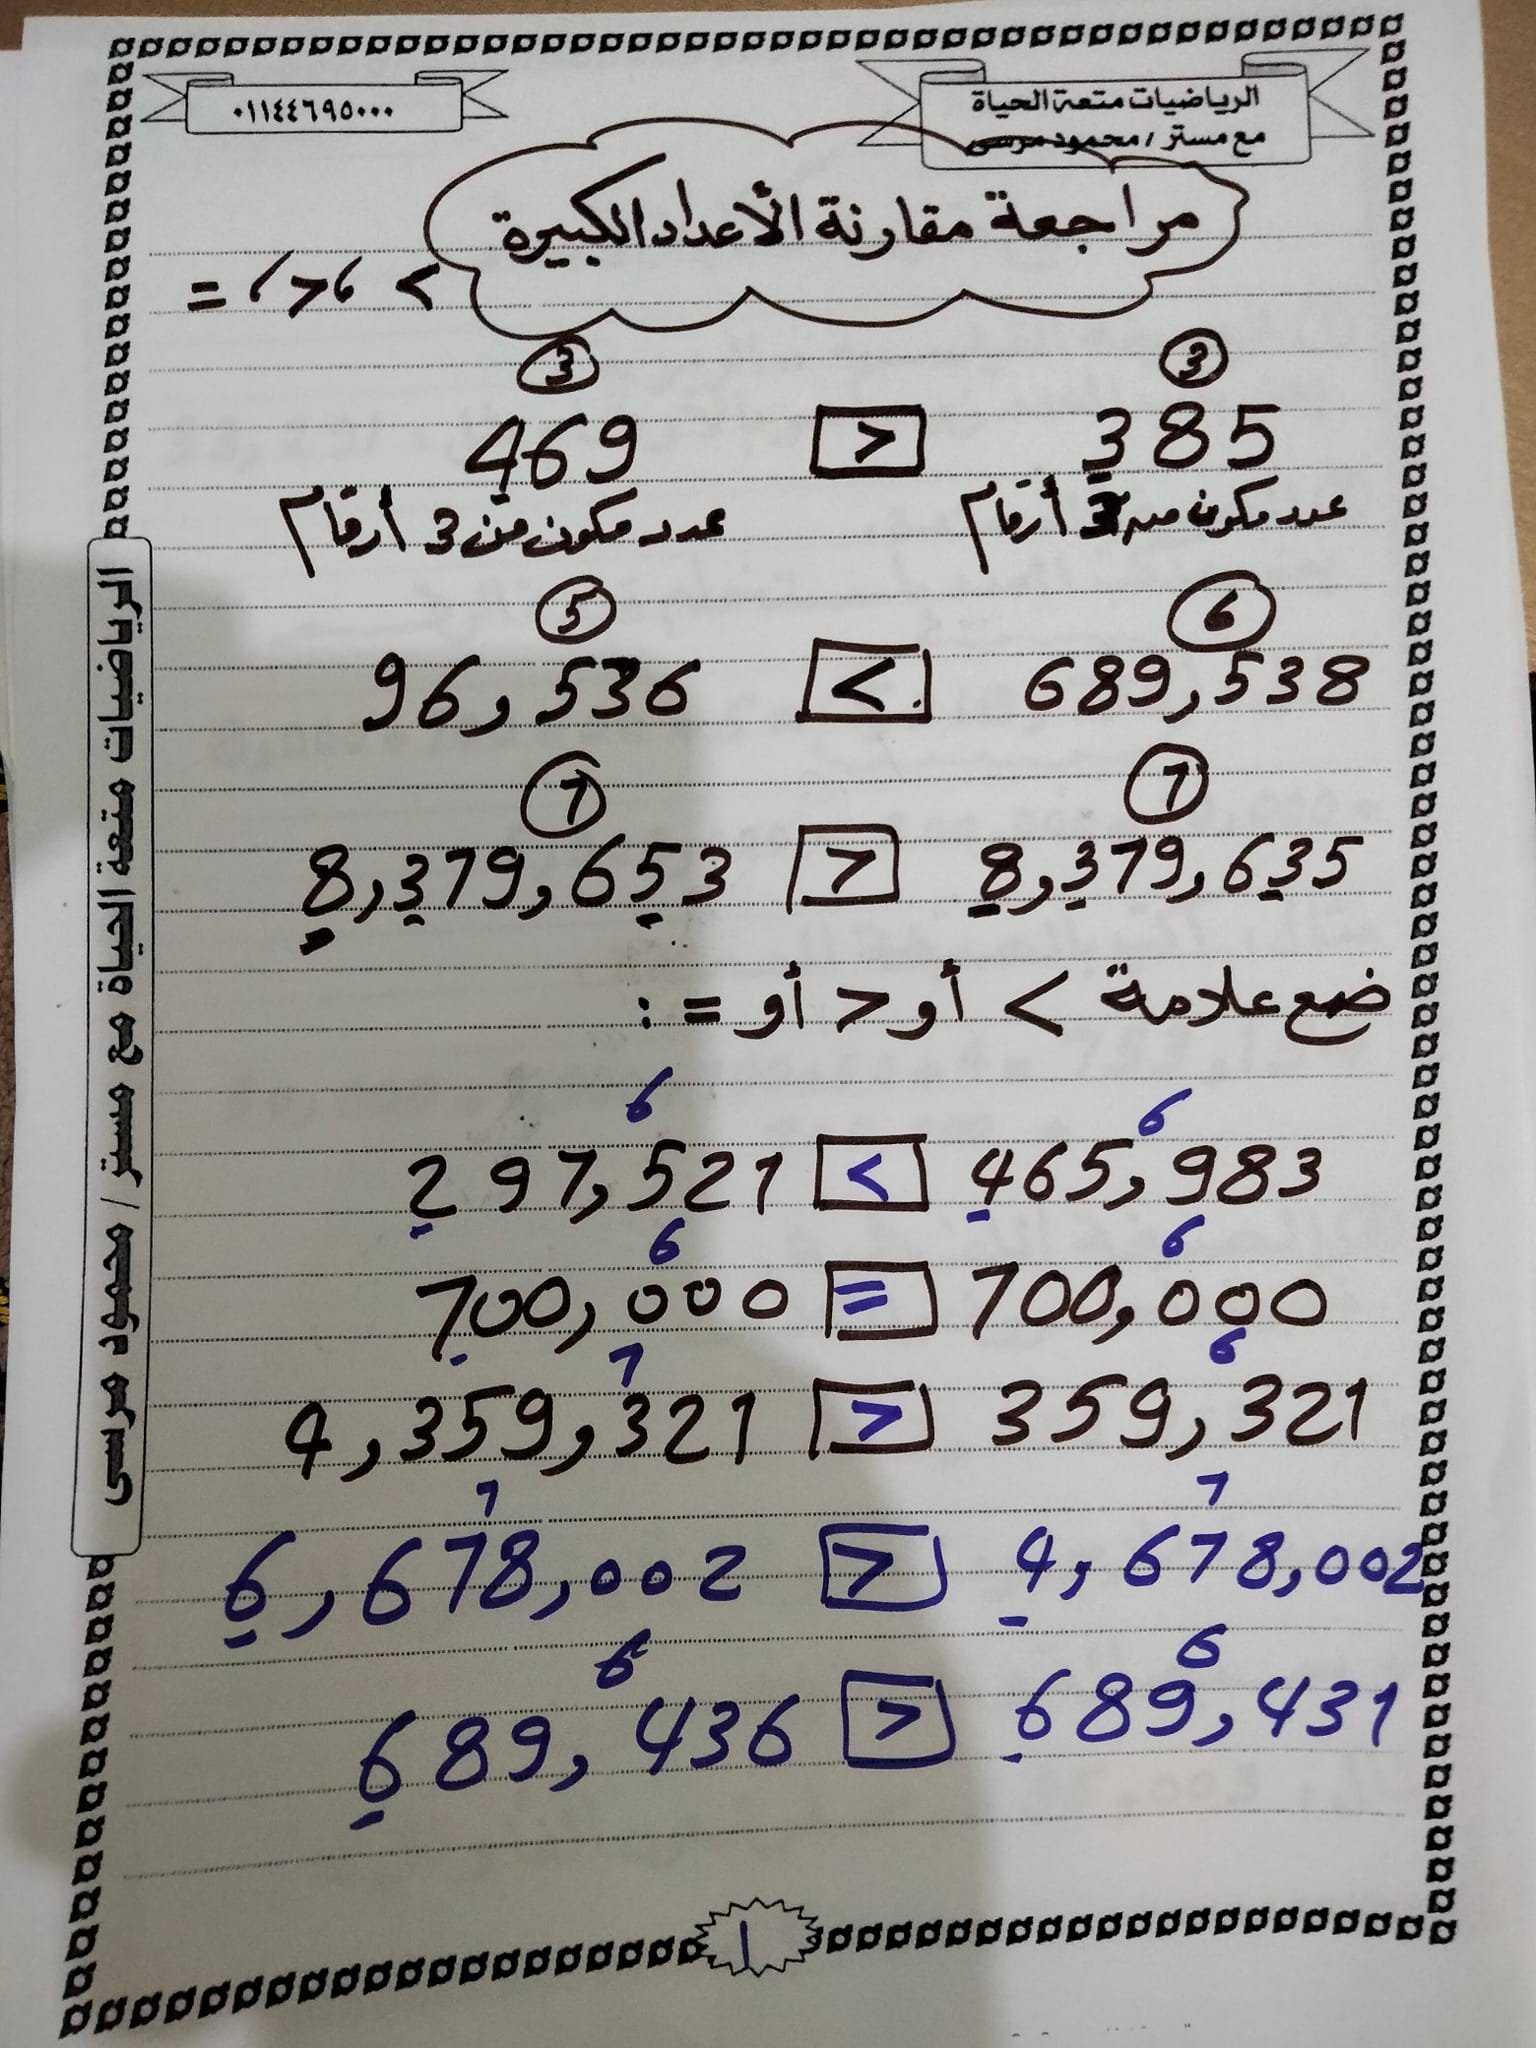 الرياضيات متعة الحياة
مع مستر / محمود مرسى
٠١١٤٤٦٩٥٠٠٠
مراجعة مقارنة الأعداد الكبيرة
< ، > ، =
3 3
469 > 385
عدد مكون من 3 أرقام عدد مكون من 3 أرقام
5 6
96,536 < 689,538
7 7
8,379,653 > 8,379,635
ضع علامة < أو > أو = :
6 6
297,521 < 465,983
6 6
700,000 = 700,000
7 6
4,359,321 > 359,321
7 7
6,678,002 > 4,678,002
6 6
689,436 > 689,431
١
الرياضيات متعة الحياة مع مستر / محمود مرسى